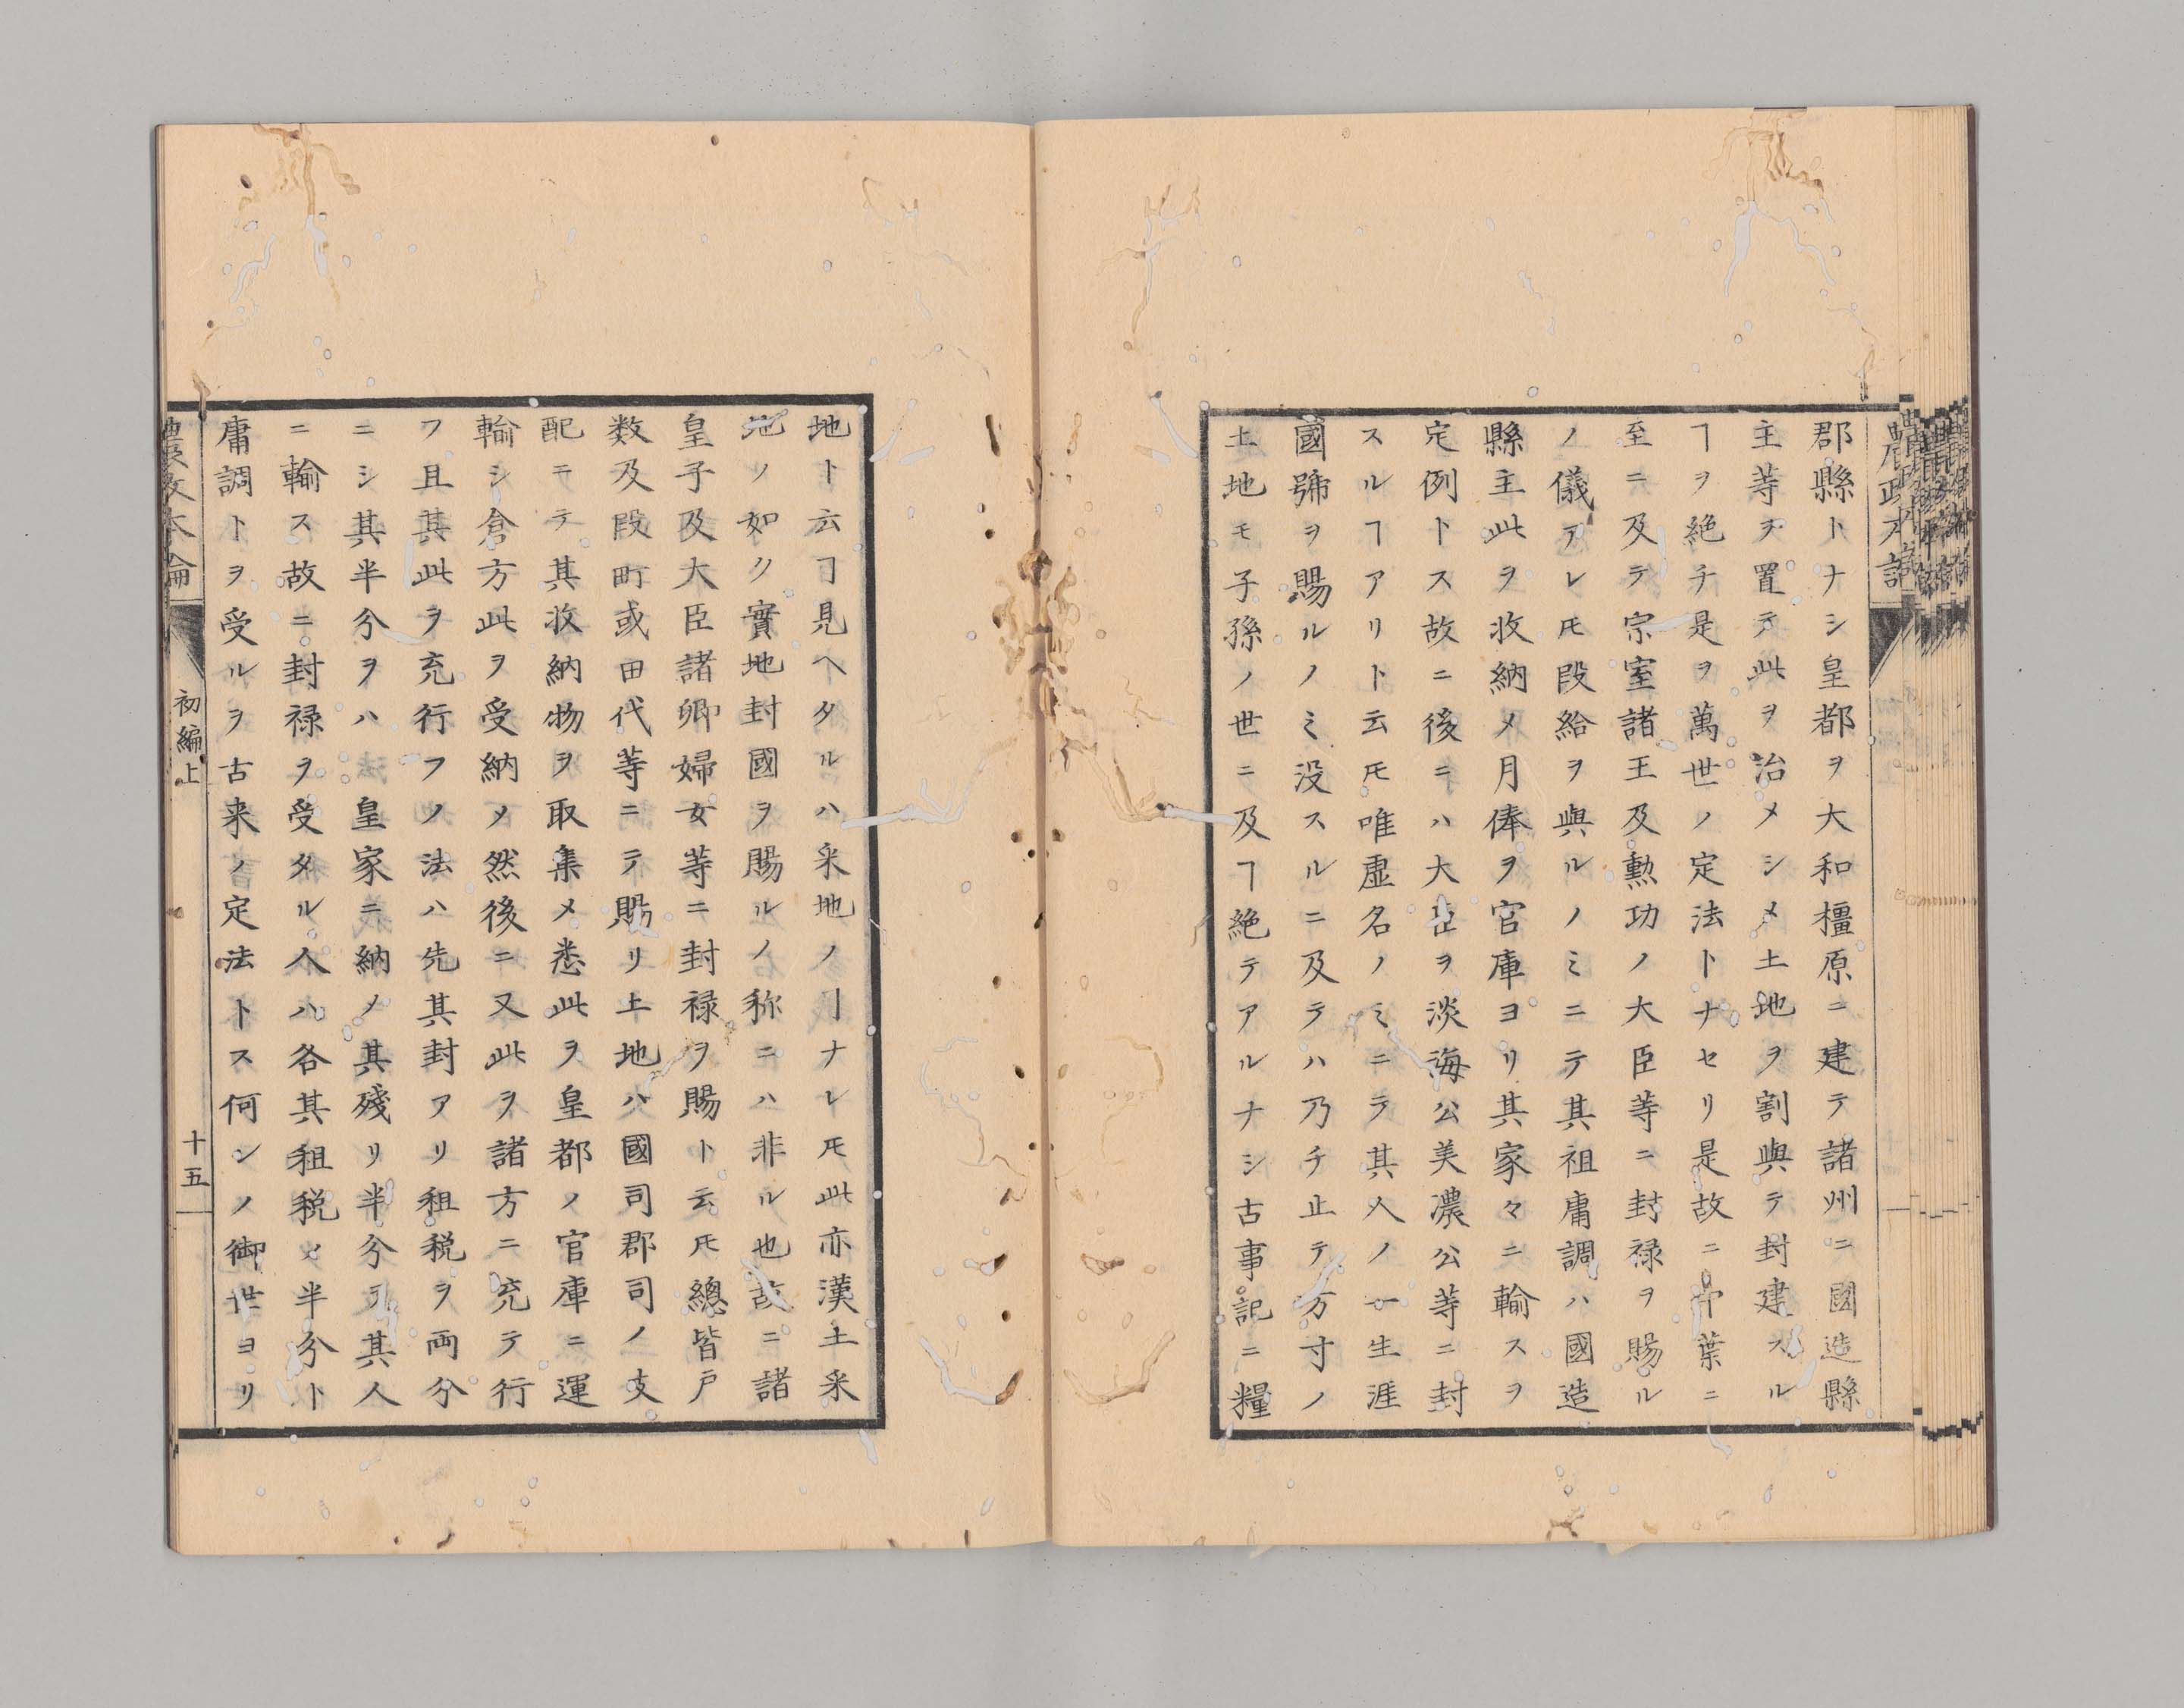 郡縣トナシ皇都ヲ大和橿原ニ建テ諸州ニ國造縣
主等ヲ置テ此ヲ治メシメ土地ヲ割與テ封建スル
ヿヲ絶チ是ヲ萬世ノ定法トナセリ是故ニ中葉ニ
至ニ及テ宗室諸王及勲功ノ大臣等ニ封禄ヲ賜ル
ノ儀アレ𪜈段給ヲ與ルノミニテ其祖庸調ハ國造
縣主此ヲ收納メ月俸ヲ官庫ヨリ其家々ニ輸スヲ
定例トス故ニ後ニハ大臣ヲ淡海公美濃公等ニ封
スルヿアリト云𪜈唯虚名ノミニテ其人ノ一生涯
國號ヲ賜ルノミ没スルニ及テハ乃チ止テ方寸ノ
土地モ子孫ノ世ニ及ヿ絶テアルナシ古事記ニ糧
地ト云ヿ見ヘタルハ采地ノヿナレ𪜈此亦漢土采
地ノ如ク實地封國ヲ賜ルノ称ニハ非ル也故ニ諸
皇子及大臣諸卿婦女等ニ封禄ヲ賜ト云𪜈總皆戸
数及段町或田代等ニテ賜リ土地ハ國司郡司ノ支
配ニテ其收納物ヲ取集メ悉此ヲ皇都ノ官庫ニ運
輸シ倉方此ヲ受納メ然後ニ又此ヲ諸方ニ充テ行
フ且其此ヲ充行フノ法ハ先其封アリ租税ヲ両分
ニシ其半分ヲハ皇家ニ納メ其殘リ半分ヲ其人
ニ輸ス故ニ封禄ヲ受タル人ハ各其租税ノ半分ト
庸調トヲ受ルヲ古来ノ定法トス何ンノ御世ヨリ
農政本論
初編上
十五